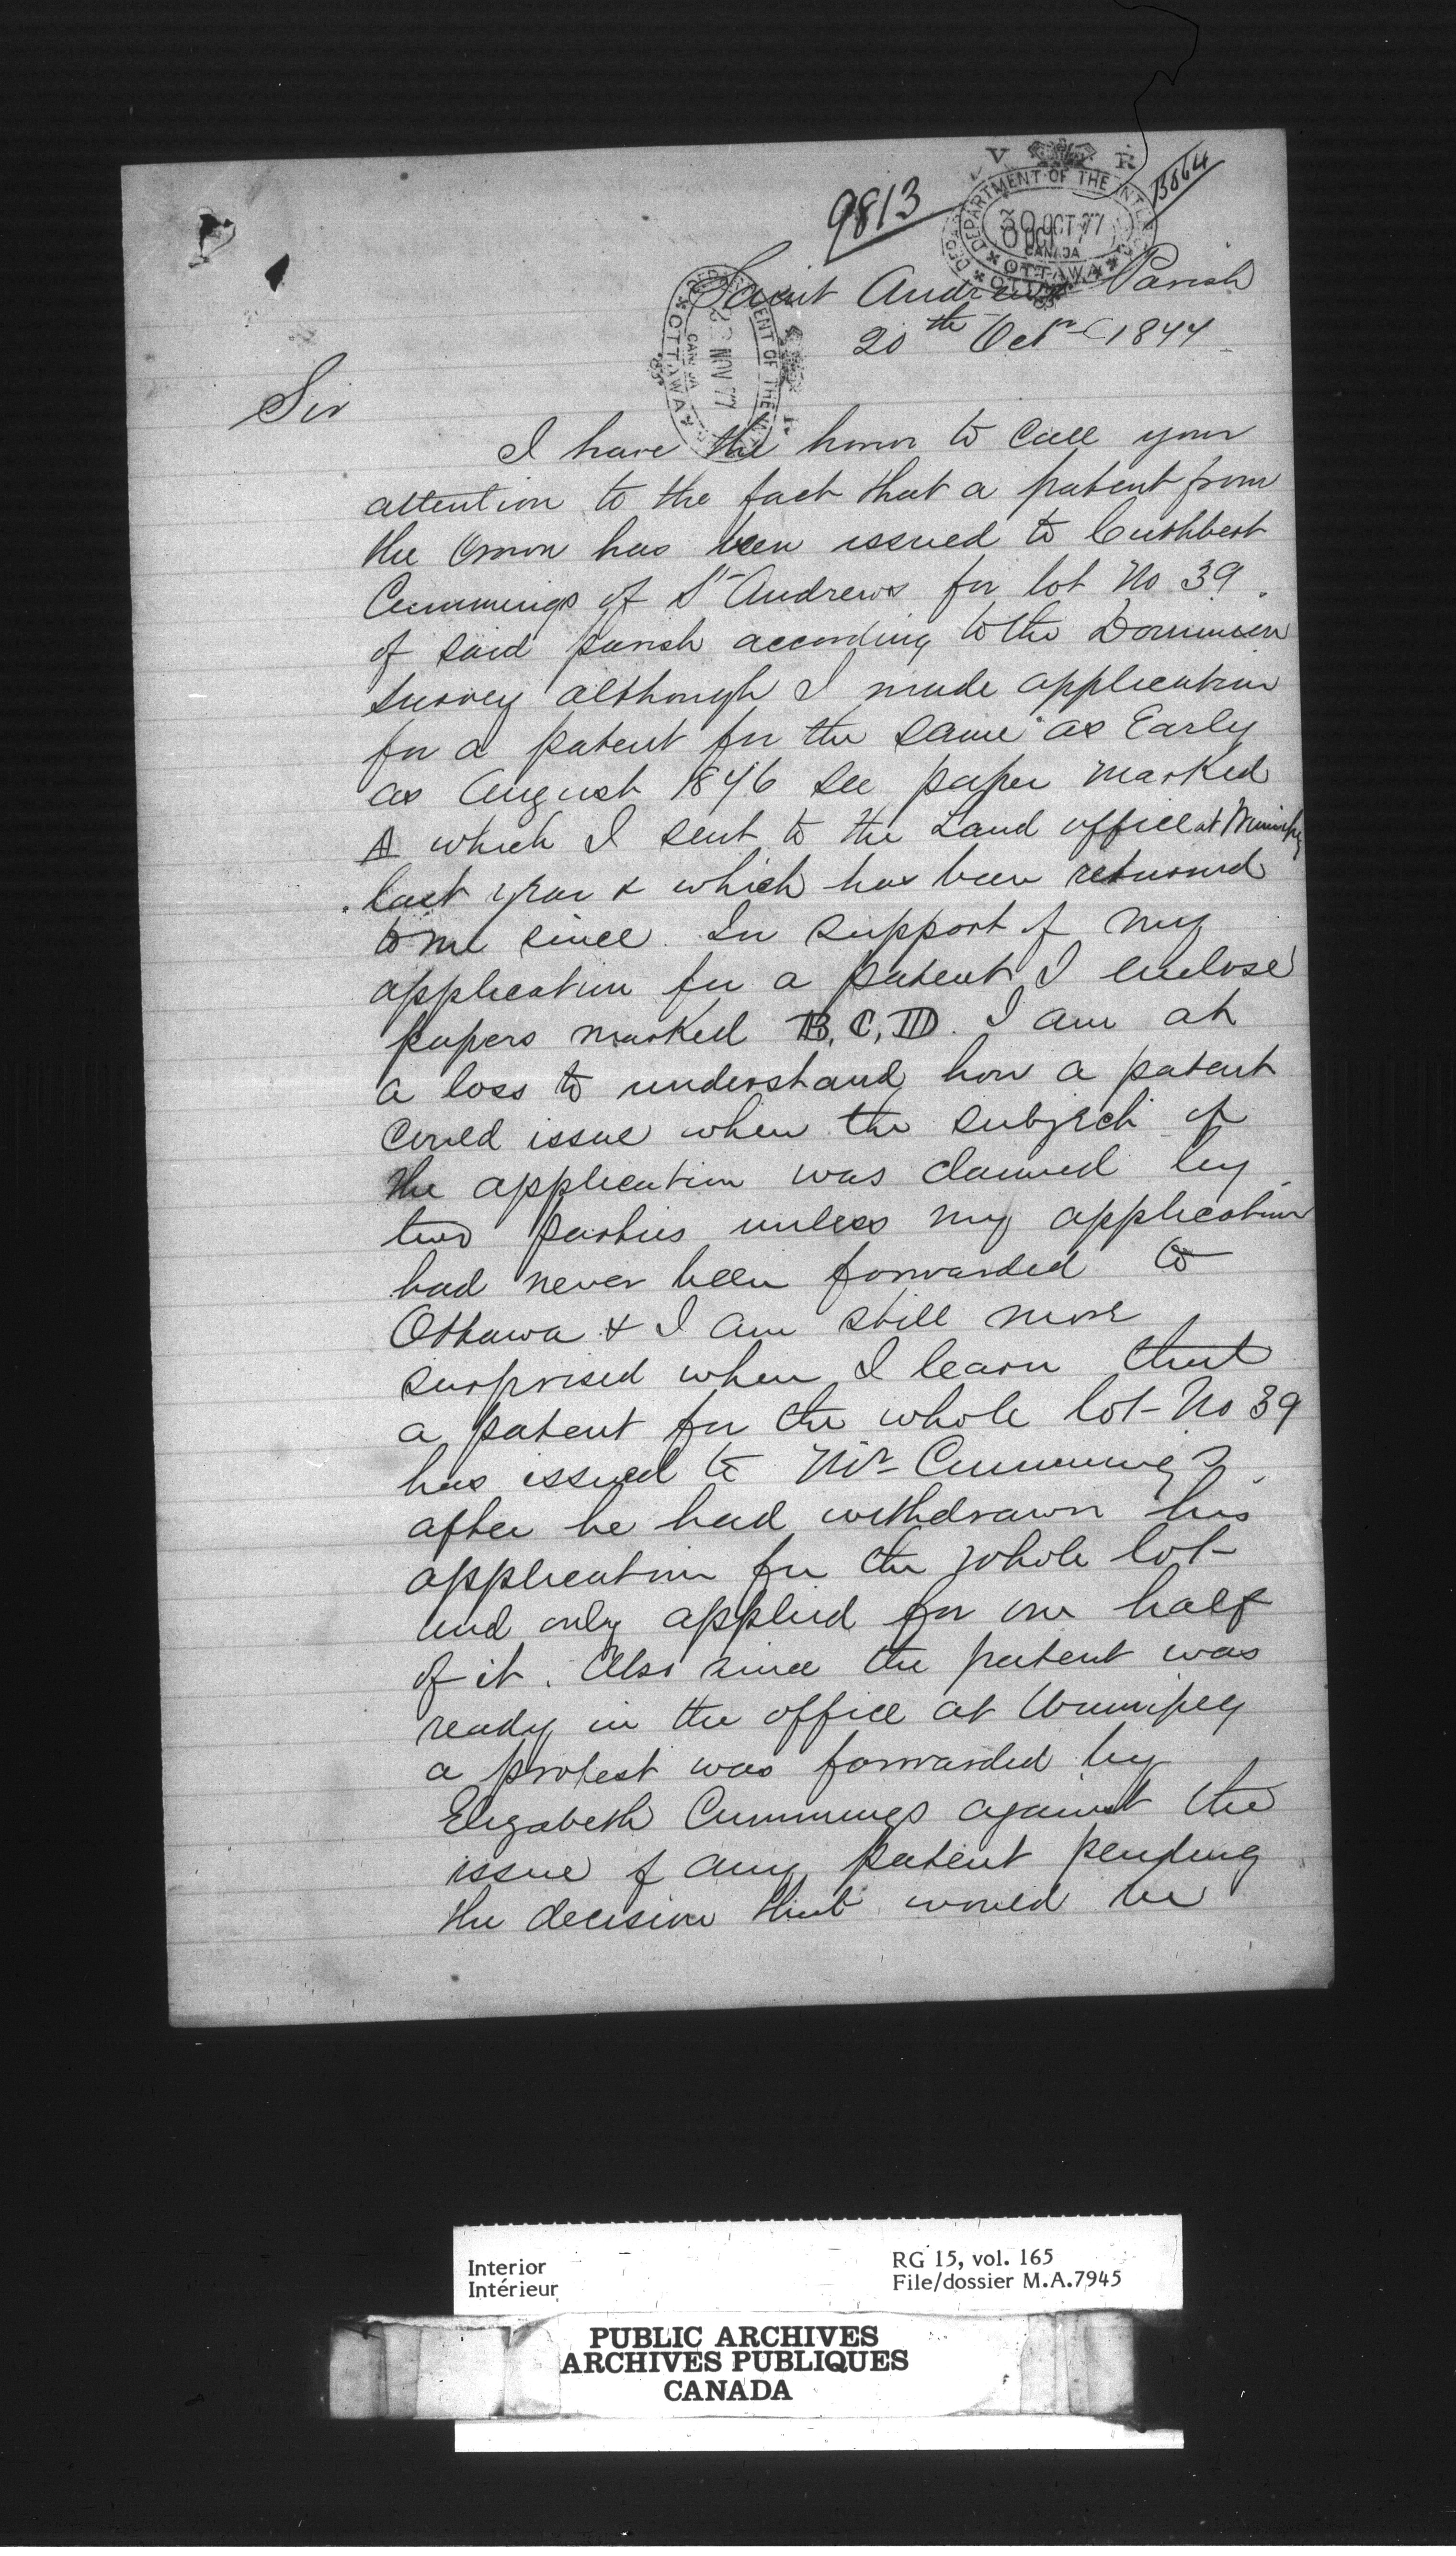 9813
B864
V R
DEPARTMENT OF THE INTERIOR
30 OCT 77
CANADA
OTTAWA
Saint Andrews Parish
20th Octr 1877
DEPARTMENT OF THE INTERIOR
NOV 77
CANADA
OTTAWA
Sir
I have the honor to call your
attention to the fact that a patent from
the Crown has been issued to Cuthbert
Cummings of St Andrews for lot No 39.
of said parish according to the Dominion
Survey although I made application
for a patent for the same as Early
as August 1876 see paper marked
A which I sent to the Land office at Winnipeg
last year & which has been returned
to me since. In support of my
application for a patent I enclose
papers marked B, C, D. I am at
a loss to understand how a patent
could issue when the subject of
the application was claimed by
two parties unless my application
had never been forwarded to
Ottawa & I am still more
surprised when I learn that
a patent for the whole lot No 39
has issued to Mr Cummings
after he had withdrawn his
application for the whole lot
and only applied for one half
of it. Also since the patent was
ready in the office at Winnipeg
a protest was forwarded by
Elizabeth Cummings against the
issue of any patent pending
the decision that would be
Interior
Intérieur
RG 15, vol. 165
File/dossier M.A.7945
PUBLIC ARCHIVES
ARCHIVES PUBLIQUES
CANADA